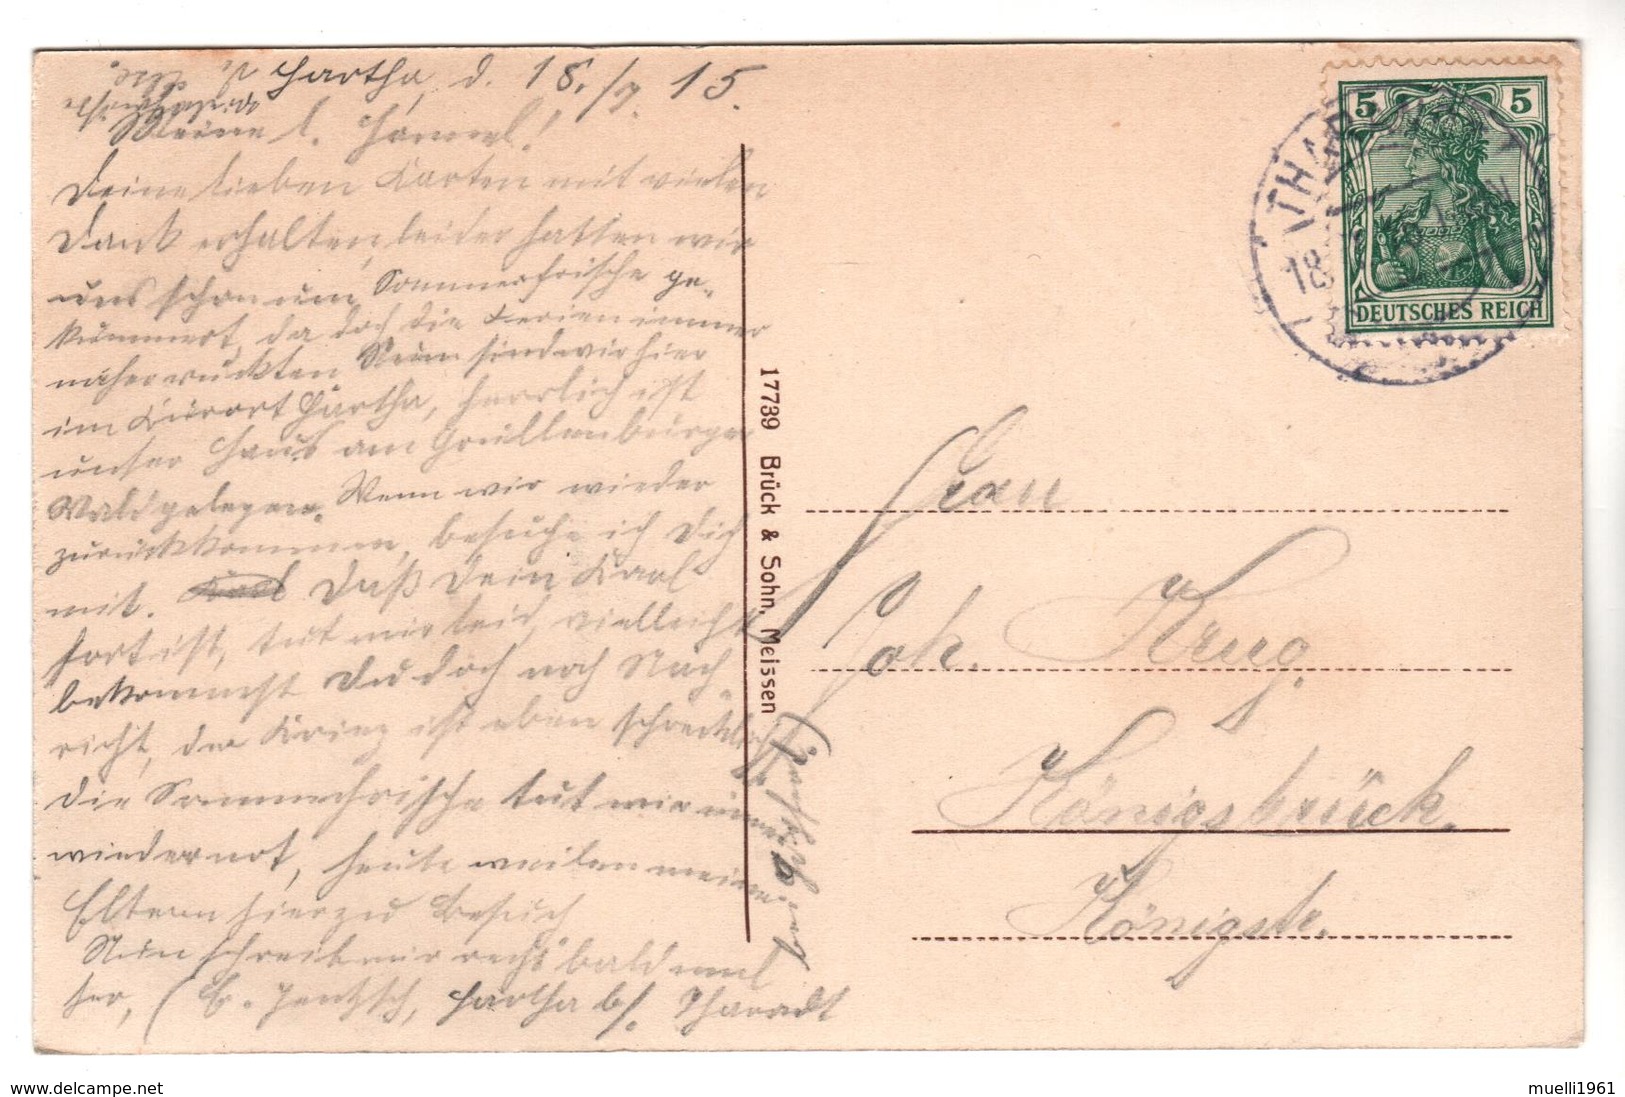 Hartha, d. 18./7. 15.
Meine l. Hannel!
Deine lieben Karten mit vielen
Dank erhalten, leider hatten wir
uns schon um Sommerfrische ge-
kümmert, da doch die Ferien immer
näher rückten Nun sind wir hier
im Kurort Hartha, herrlich ist
unser Haus am Grüllenburger
Wald gelegen. Wenn wir wieder
zurückkommen, besuche ich Dich
mit. Daß Dein Karl
fort ist, tut mir leid, vielleicht
bekommst Du doch noch Nach-
richt, der Krieg ist eben schrecklich
die Sommerfrische tut mir
wieder not, heute weilen meine
Eltern hier zu Besuch
Nun schreib mir recht bald mal
her, ( b. Jentzsch, Hartha b/. Tharadt
17739 Brück & Sohn, Meissen
5 5
DEUTSCHES REICH
THAR
18
Frau
Joh. Krug.
Königsbrück.
Königstr.
muelli1961
delcampe.net